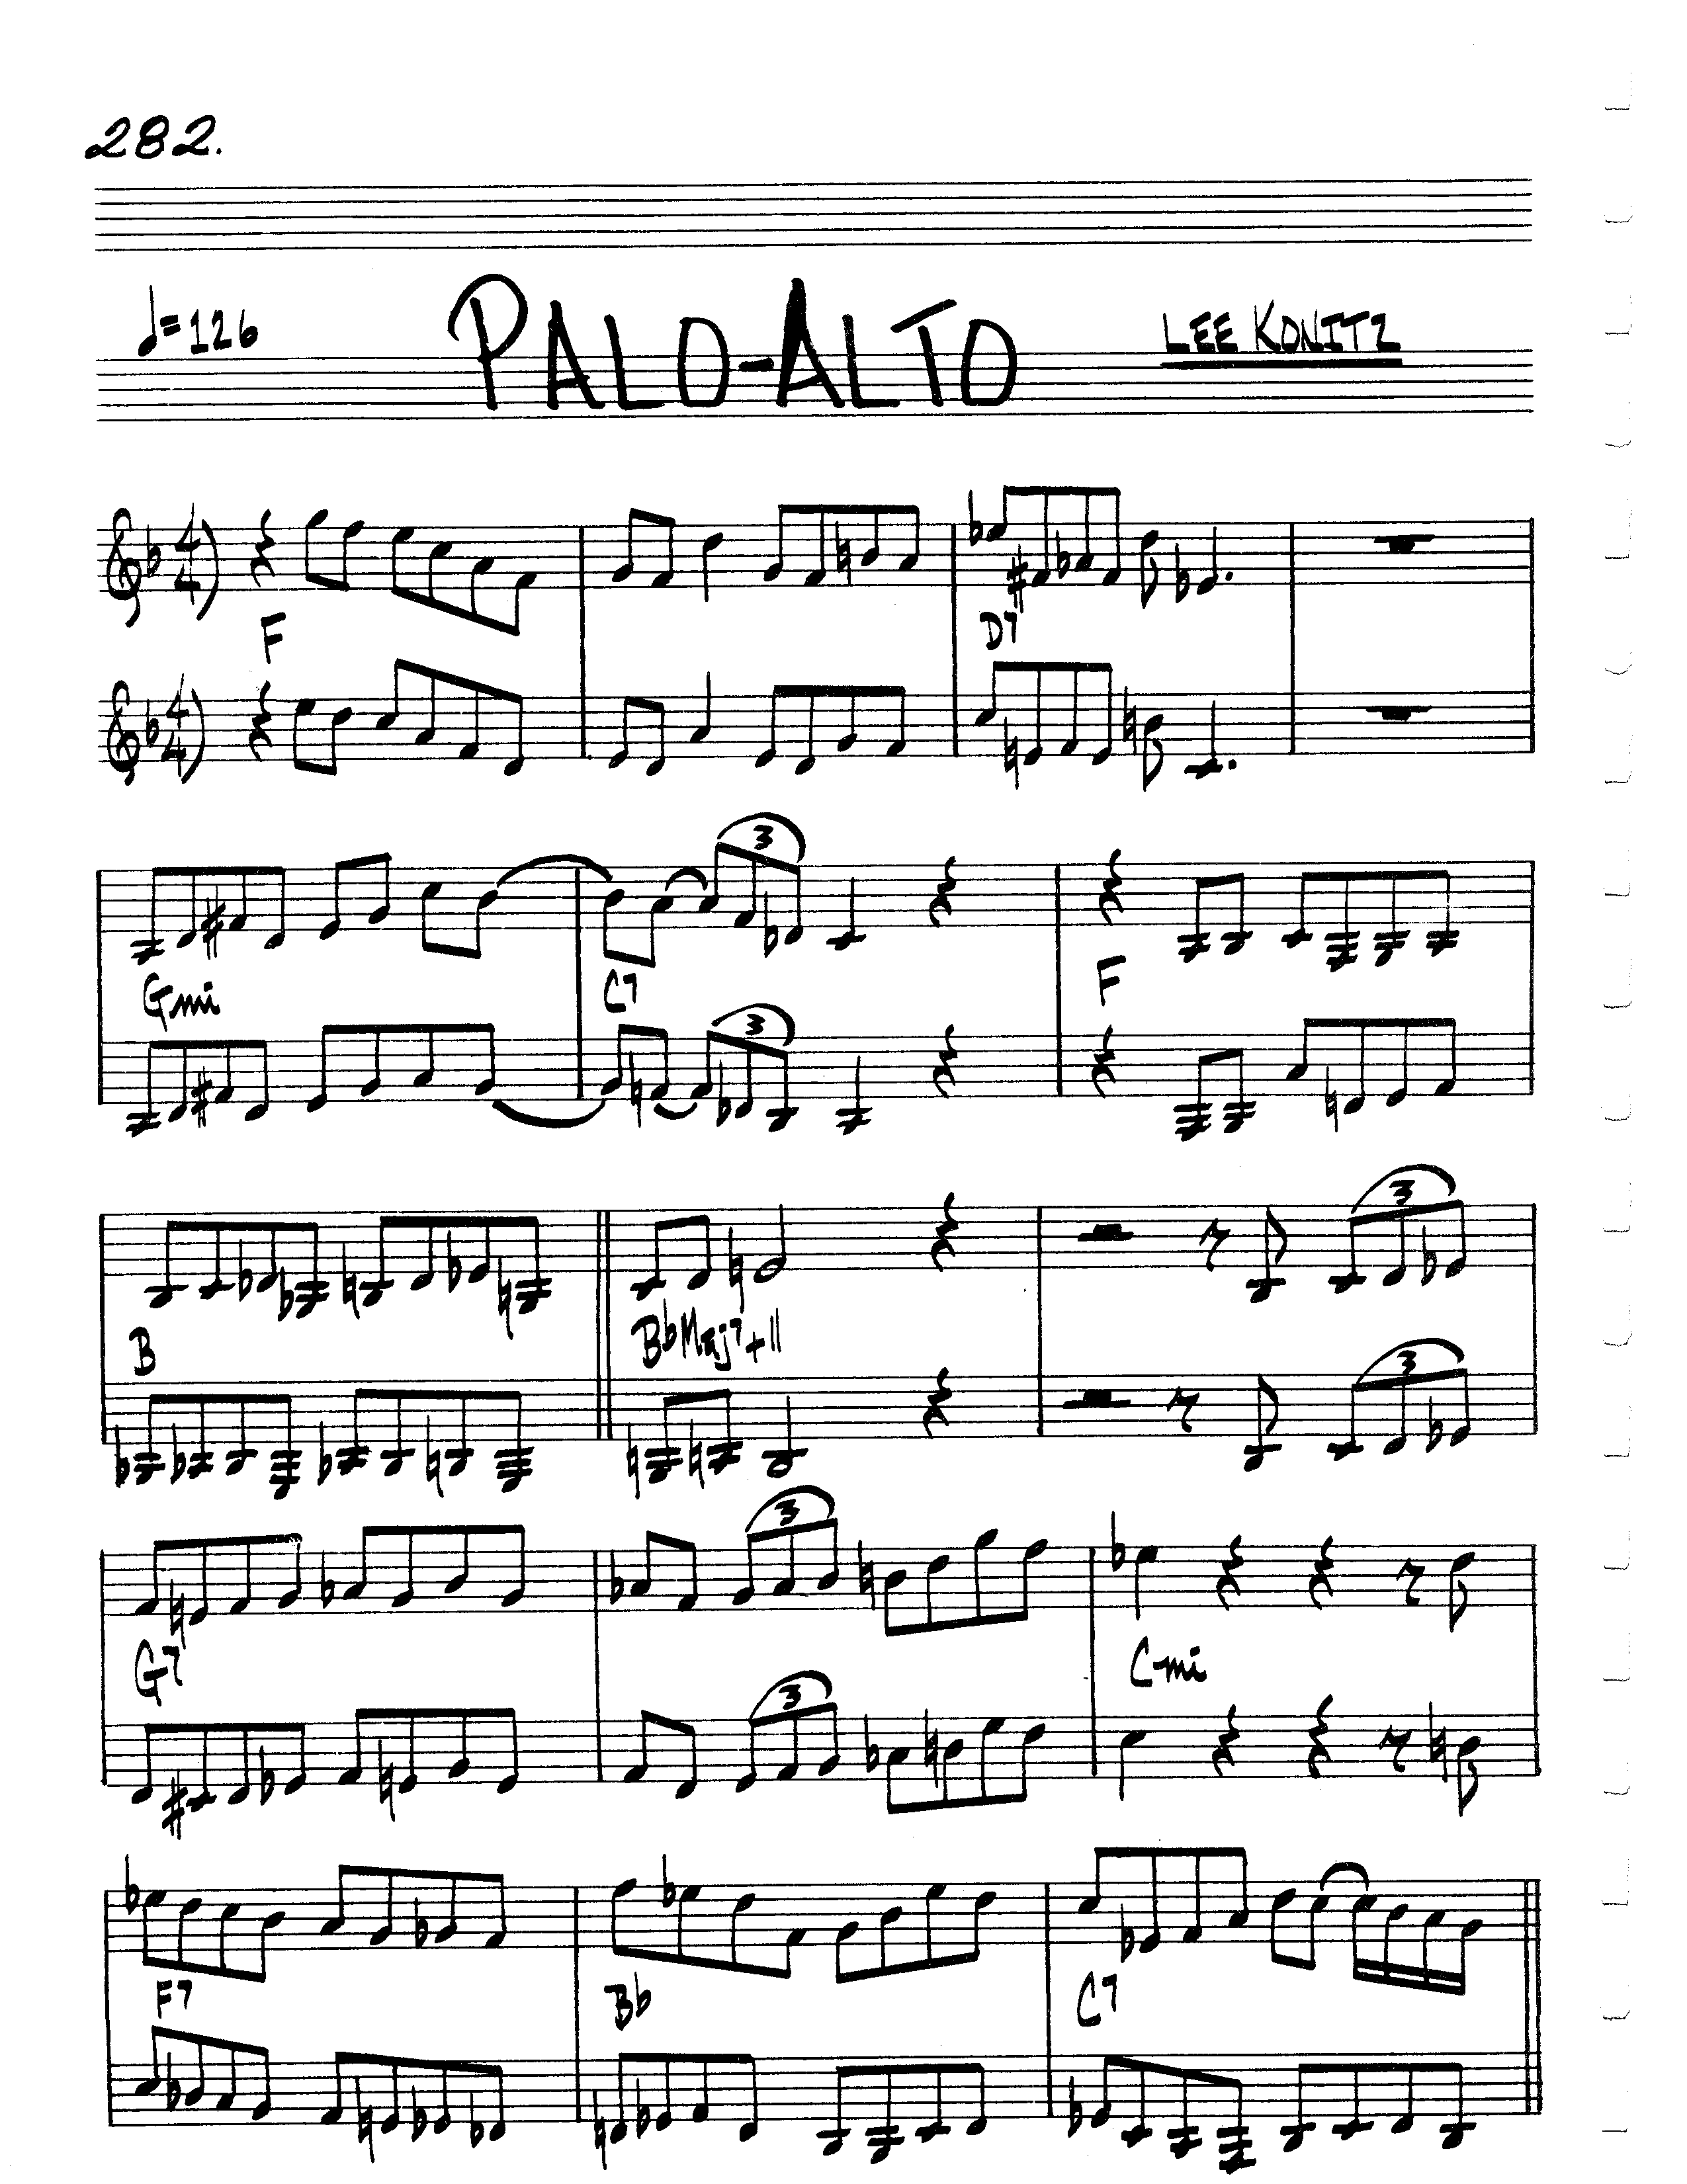 282.
♩=126 PALO-ALTO LEE KONITZ
4 4
F D7
4 4
3
Gmi C7 F
3
3
B BbMaj7+11
3
3
G7 Cmi
3
F7 Bb C7